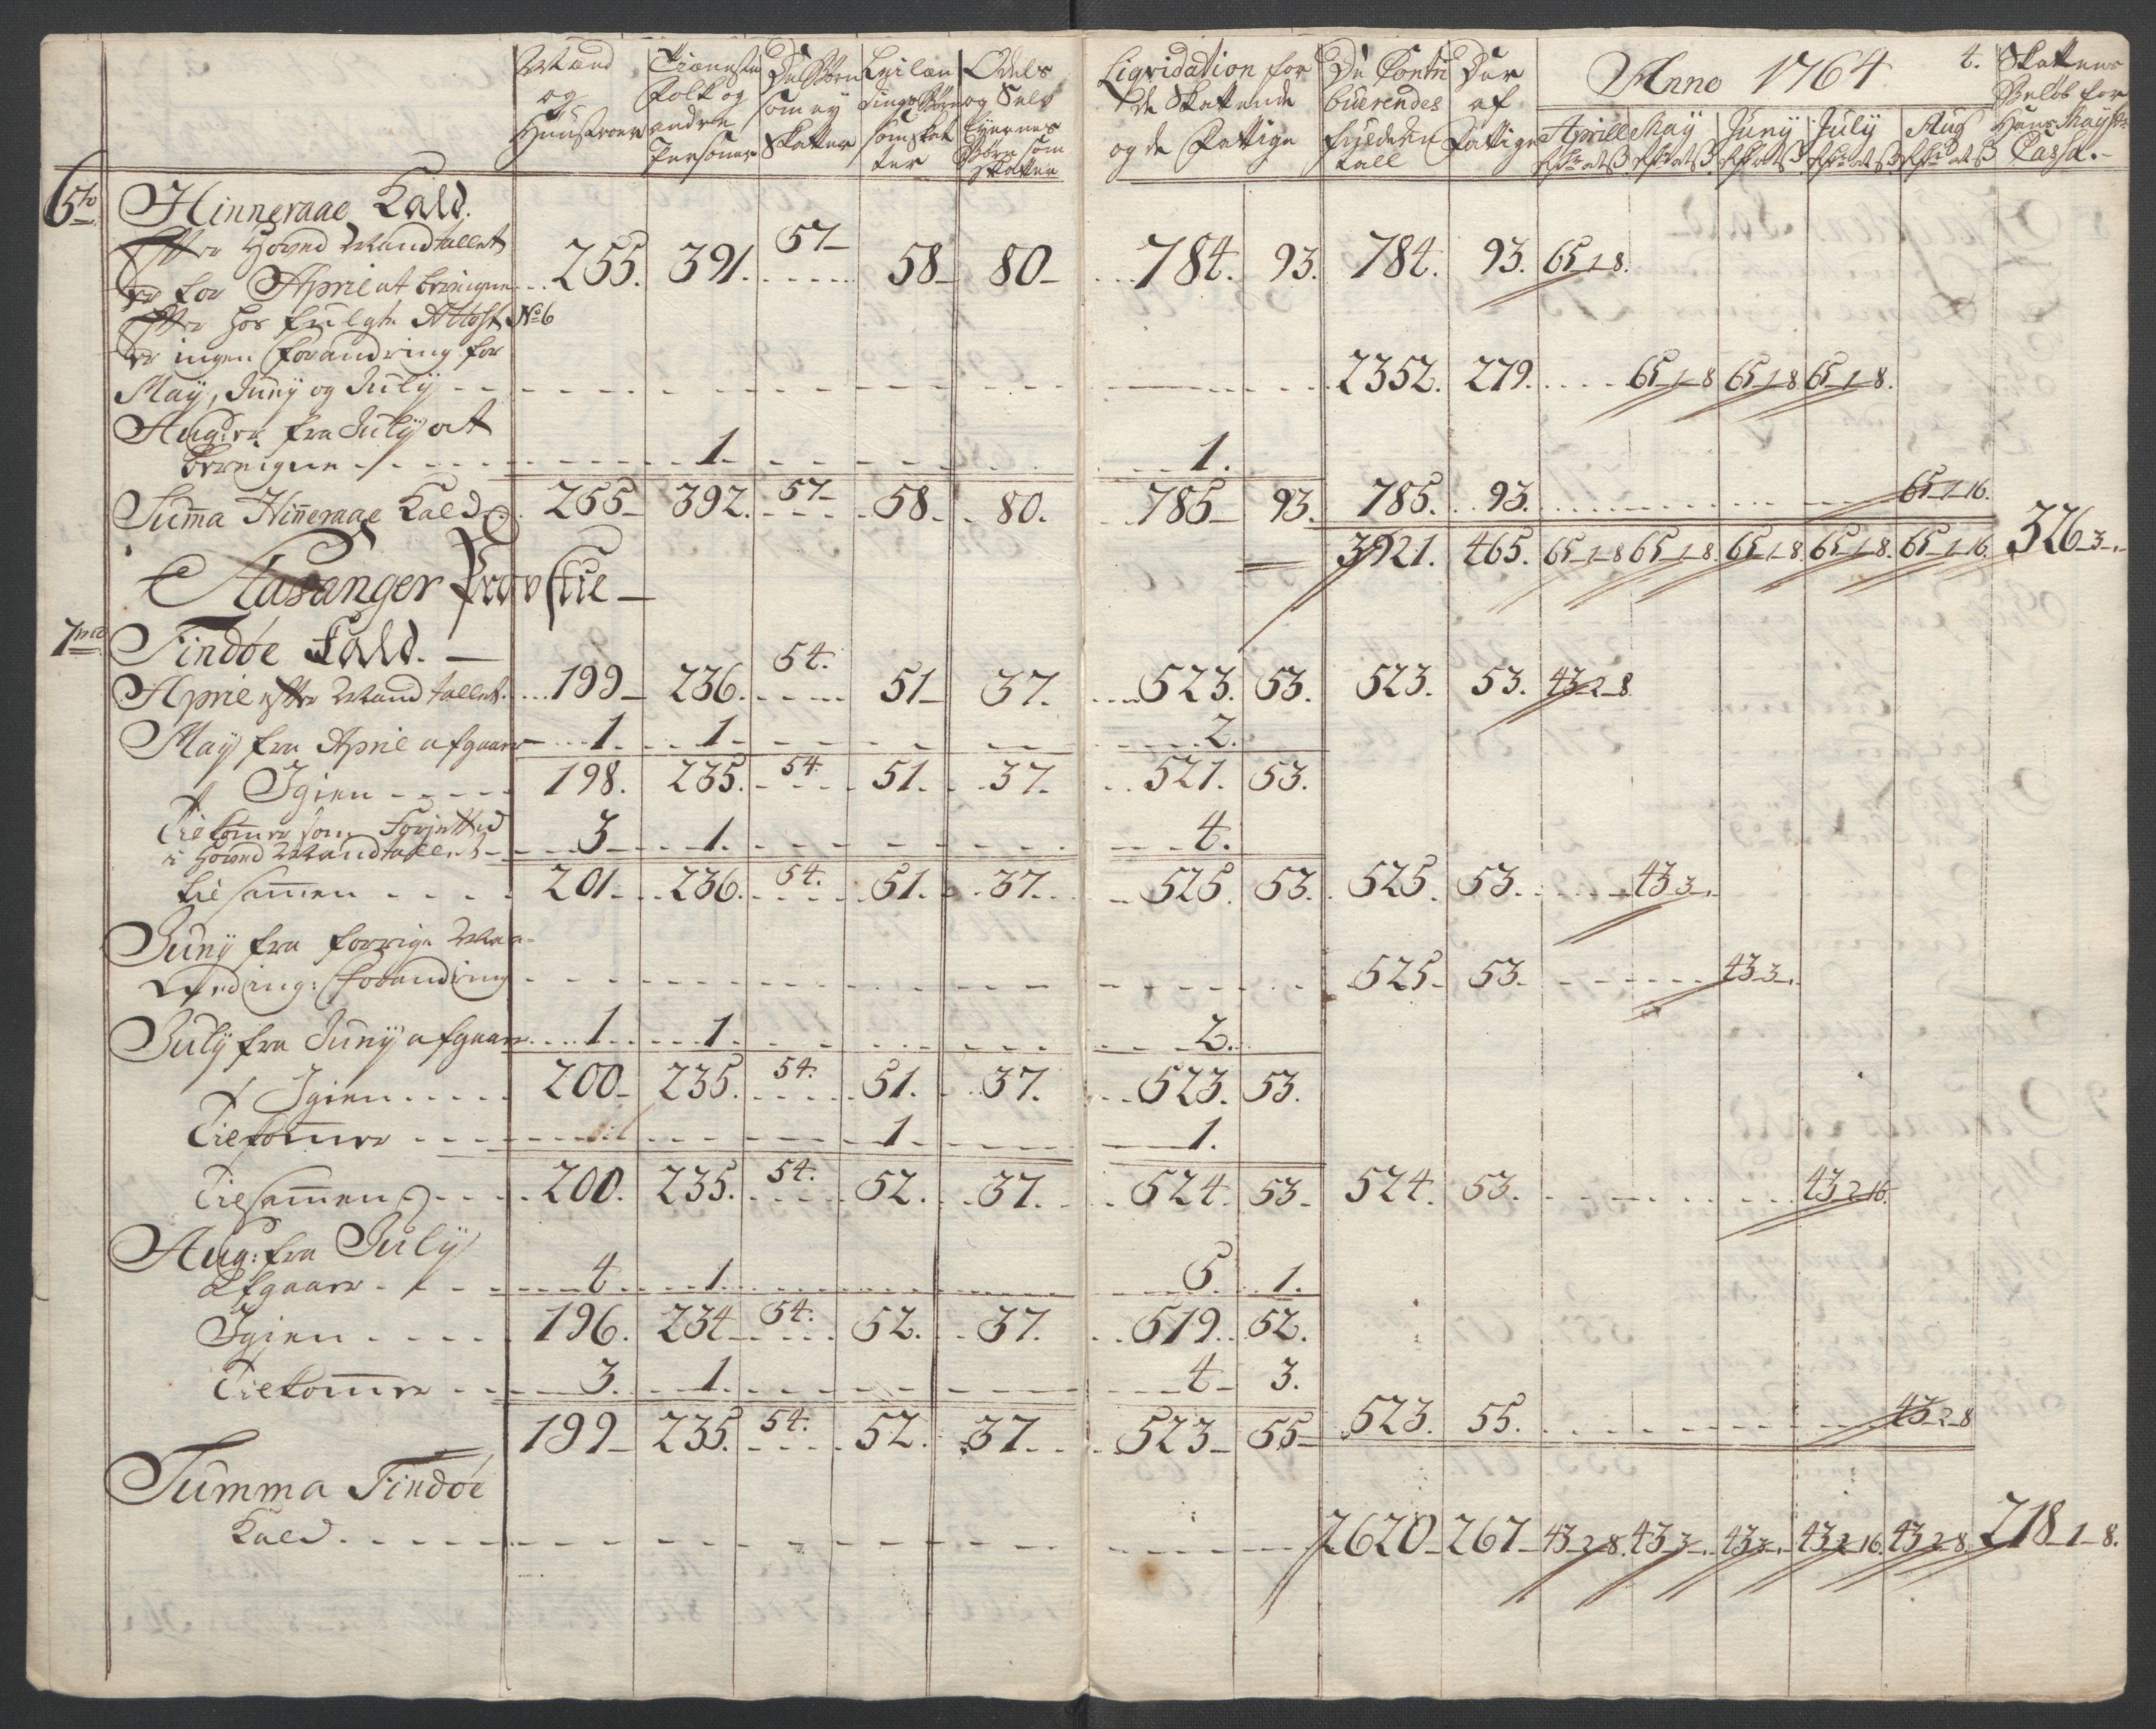 Mænd og Hunstroer | Tieneste Folk og andre Personer | De Børn som ej Skatter | Leilændings Børn som skatter | Odels og Selv Eyernes Børn som Skatter | Liqvidation for de Skattende og de Fattige | De Contribuerendes fulde Tall | Der af Fattige | Anno 1764 | 4. | Skattens Beløb for Hans Mayts Cassa.
Aprill | May | Juny | July | Aug
6te Hinneraae Kald.
Efter Hoved Mandtallet
er for April at bereigne 255. 391. 57 58 80 784. 93. 784. 93. 65 1 8.
Efter hos fulgte Attest No 6
er ingen forandring for
May, Juny og July 2352. 279. 65 1 8 65 1 8 65 1 8.
Aug: er fra July at
bereigne 1. 1.
Summa Hinneraae Kald 255 392. 57 58. 80. 785 93. 785. 93. 65 1 16.
3921. 465. 65 1 8 65 1 8. 65 1 8. 65 1 8. 65 1 16. 326 3 "
Stavanger Provstie
7me Findøe Kald.
April efter Mandtallet. 199 236. 54. 51 37. 523. 53. 523. 53. 43 2 8
May fra April afgaar 1. 1. 2.
Igien 198. 235. 54. 51. 37. 521. 53.
Tilkommer som Forjetted
i Hoved Mandtallet 3 1. 4.
tilsammen 201. 236. 54. 51. 37. 525. 53. 525. 53. 43 3 "
Juny fra forrige Maa-
ned ing: forandring 525. 53. 43 3 "
July fra Juny afgaar 1. 1. 2.
Igien 200. 235. 54. 51. 37. 523. 53.
Tilkommer 1. 1.
Tilsammen 200. 235. 54. 52. 37. 524. 53. 524. 53. 43 2 16.
Aug: fra July
afgaar 4 1. 5. 1.
Igien 196. 234 54. 52. 37. 519. 52.
Tilkommer 3. 1. 4 3.
199 235. 54. 52. 37. 523 55 523. 55. 43 2 8
Summa Findøe
Kald. 2620 267 43 2 8. 43 3 " 43 3 " 43 2 16. 43 2 8. 218 1 8.